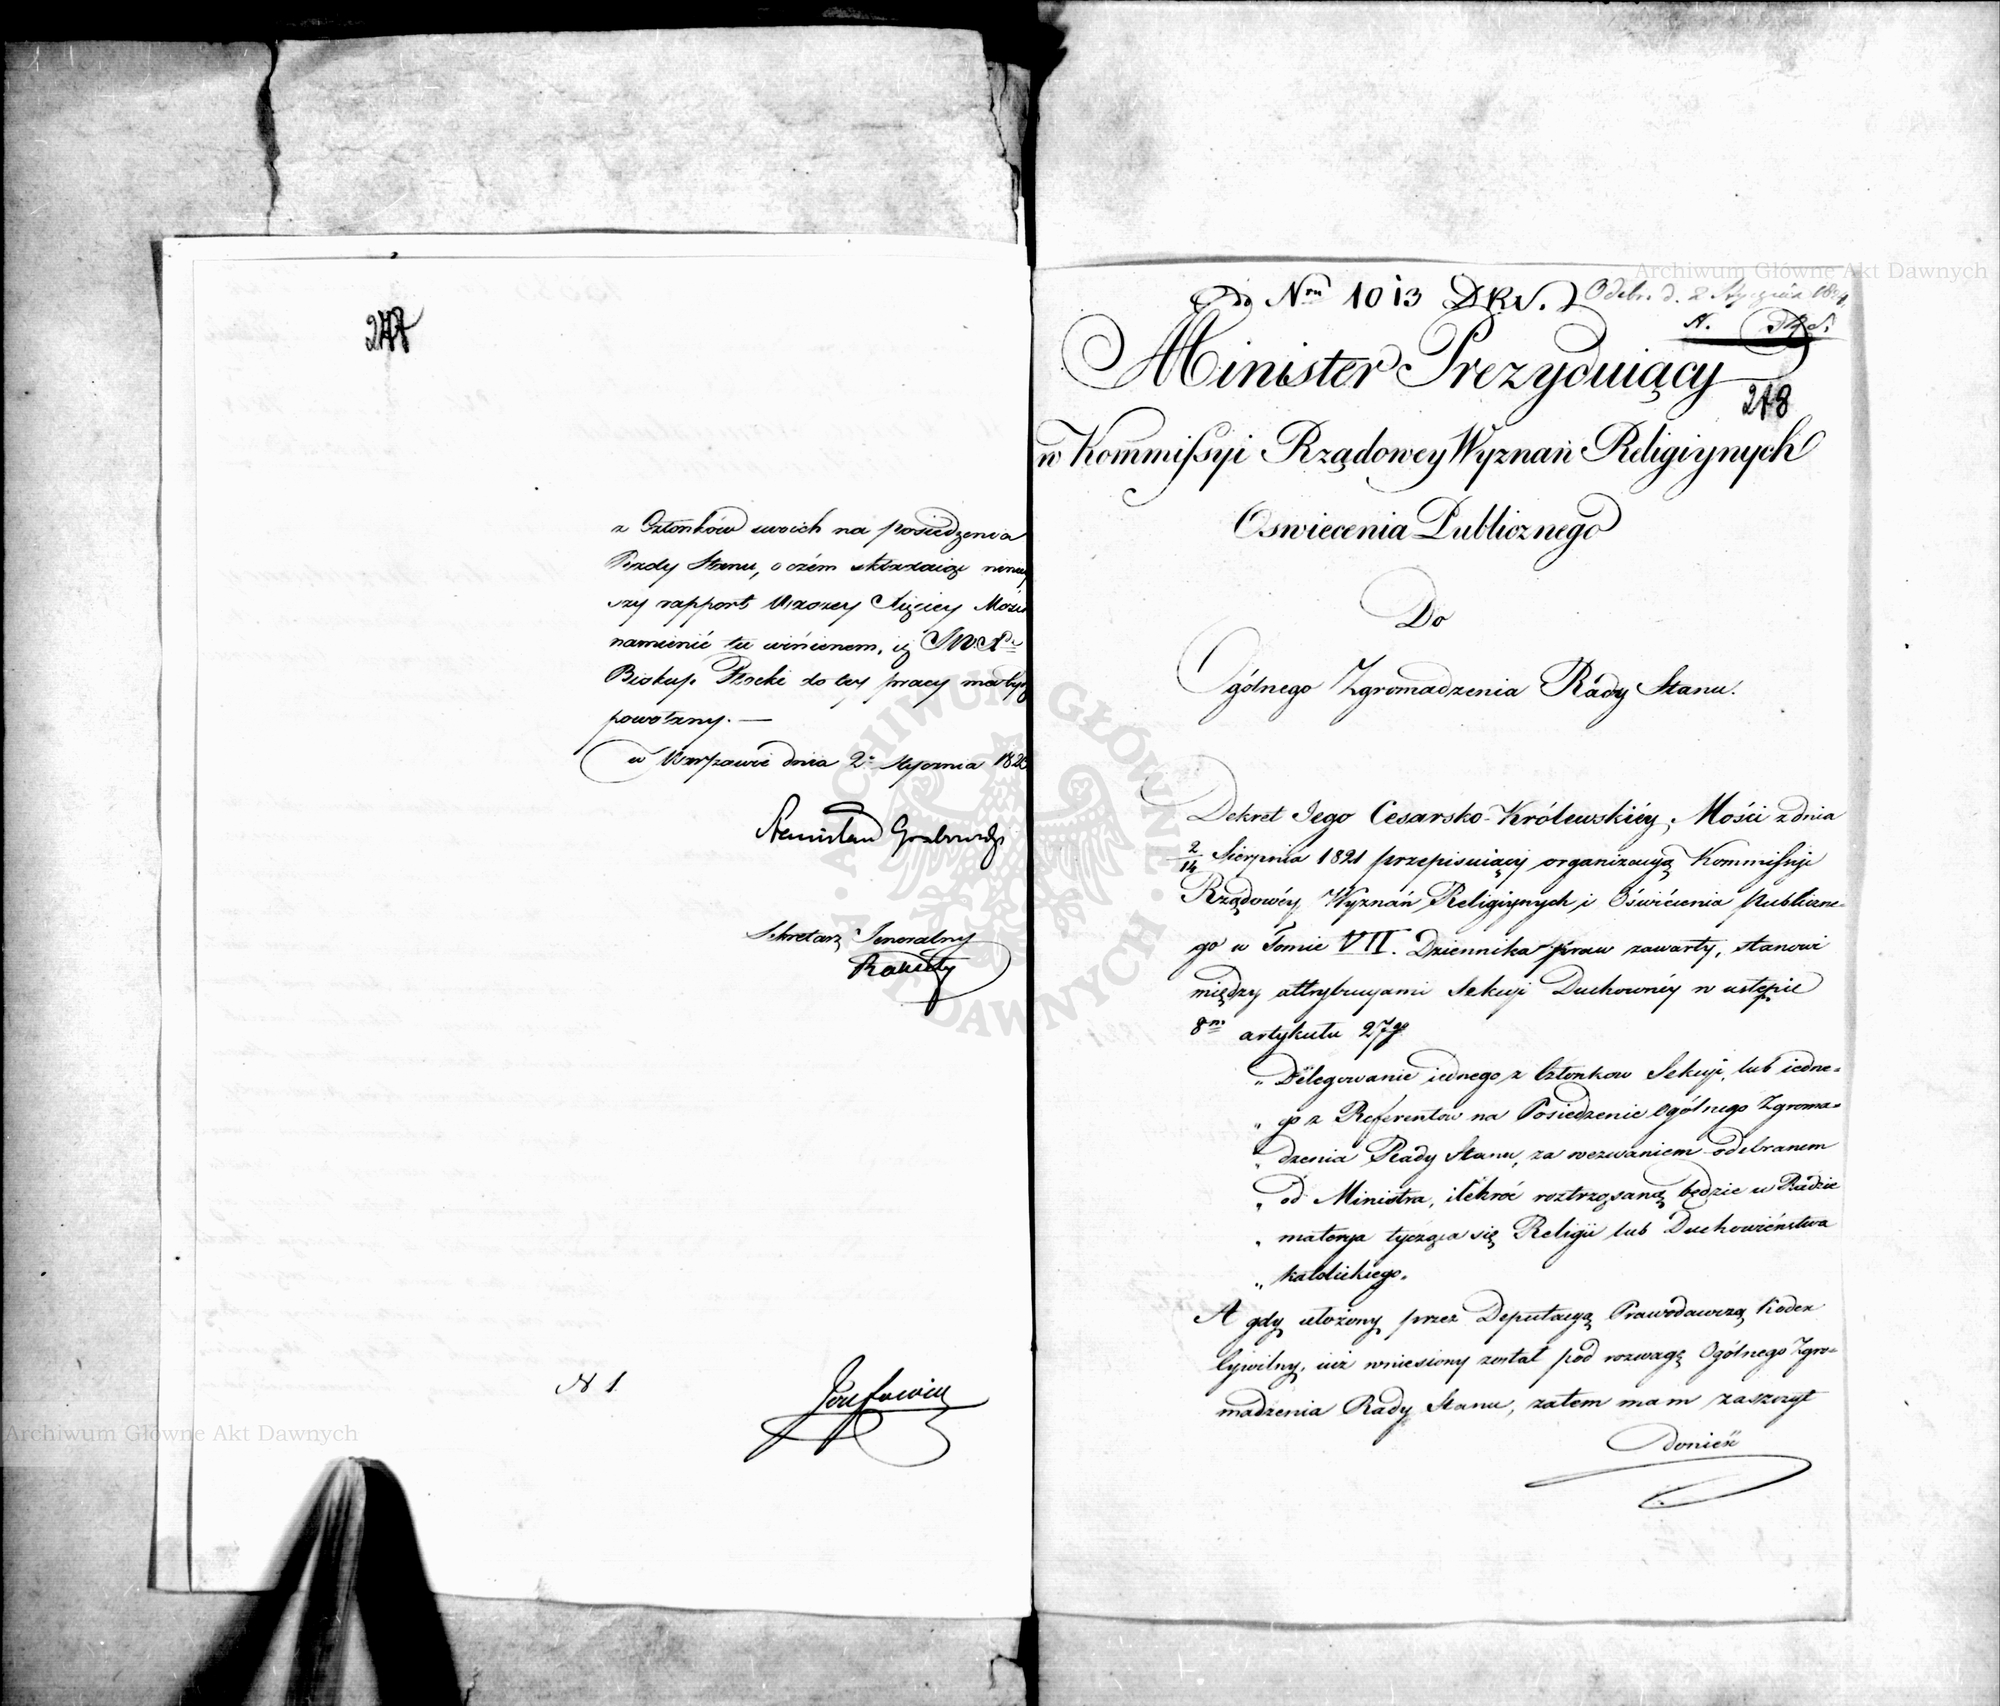 247
z Członków swoich na posiedzenia
Rady Stanu, o czém składaiąc niniey
szy rapport Waszey Xiążęcey Mości
namienić tu winienem, iż JWX
Biskup Płocki do tey pracy ma być
powołany. —
w Warszawie dnia 2. Stycznia 182
Stanisław Grabowski
Sekretarz Jeneralny
N 1
Józefowicz
do Nru 1013 DRS. Odebr. d. 2 Stycznia
N. DRS.
Minister Prezyduiący
248
w Kommissyi Rządowey Wyznań Religiynych
Oswiecenia Publicznego
Do
Ogólnego Zgromadzenia Rady Stanu.
Dekret Jego Cesarsko-Królewskiéy Mości z dnia
2/14 Sierpnia 1821 przepisuiący organizacyą Kommissyi
Rządowéy Wyznań Religiynych i Oświécenia Publiczne-
go w Tomie VII. Dziennika praw zawarty, stanowi
między attrybucyami Sekcyi Duchownéy w ustępie
8m artykułu 27go
„Delegowanie iednego z Członkow Sekcyi, lub iedne=
„go z Referentow na Posiedzenie Ogólnego Zgroma=
„dzenia Rady Stanu, za wezwaniem odebranem
„od Ministra, ilekroć roztrząsaną będzie w Radzie
„materya tycząca się Religii lub Duchowieństwa
„katolickiego.
A gdy ułożony przez Deputacyą Prawodawczą Kodex
Cywilny, iuż wniesiony został pod rozwagę Ogólnego Zgro=
madzenia Rady Stanu, zatem mam zaszczyt
donieść
Archiwum Główne Akt Dawnych
Archiwum Główne Akt Dawnych
ARCHIWUM GŁÓWNE AKT DAWNYCH